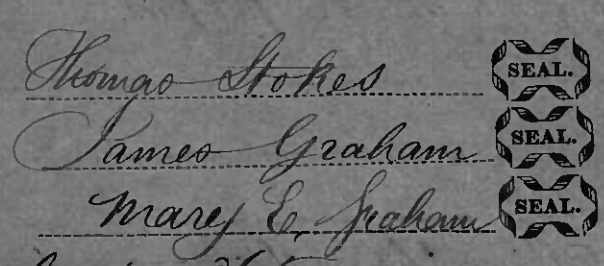 Thomas Stokes SEAL.
James Graham SEAL.
Mary E. Graham SEAL.